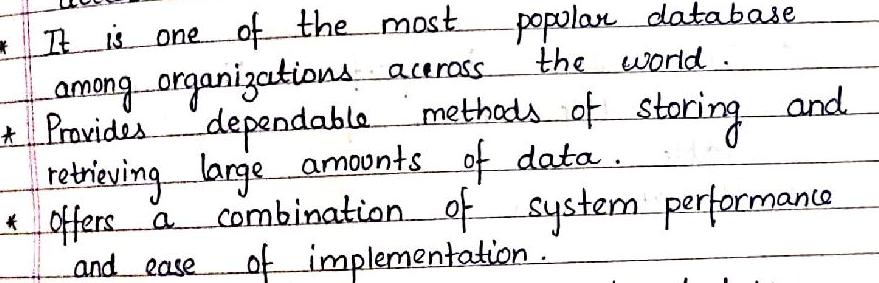 * It is one of the most popular database
among organizations across the world.
* Provides dependable methods of storing and
retrieving large amounts of data.
* Offers a combination of system performance
and ease of implementation.